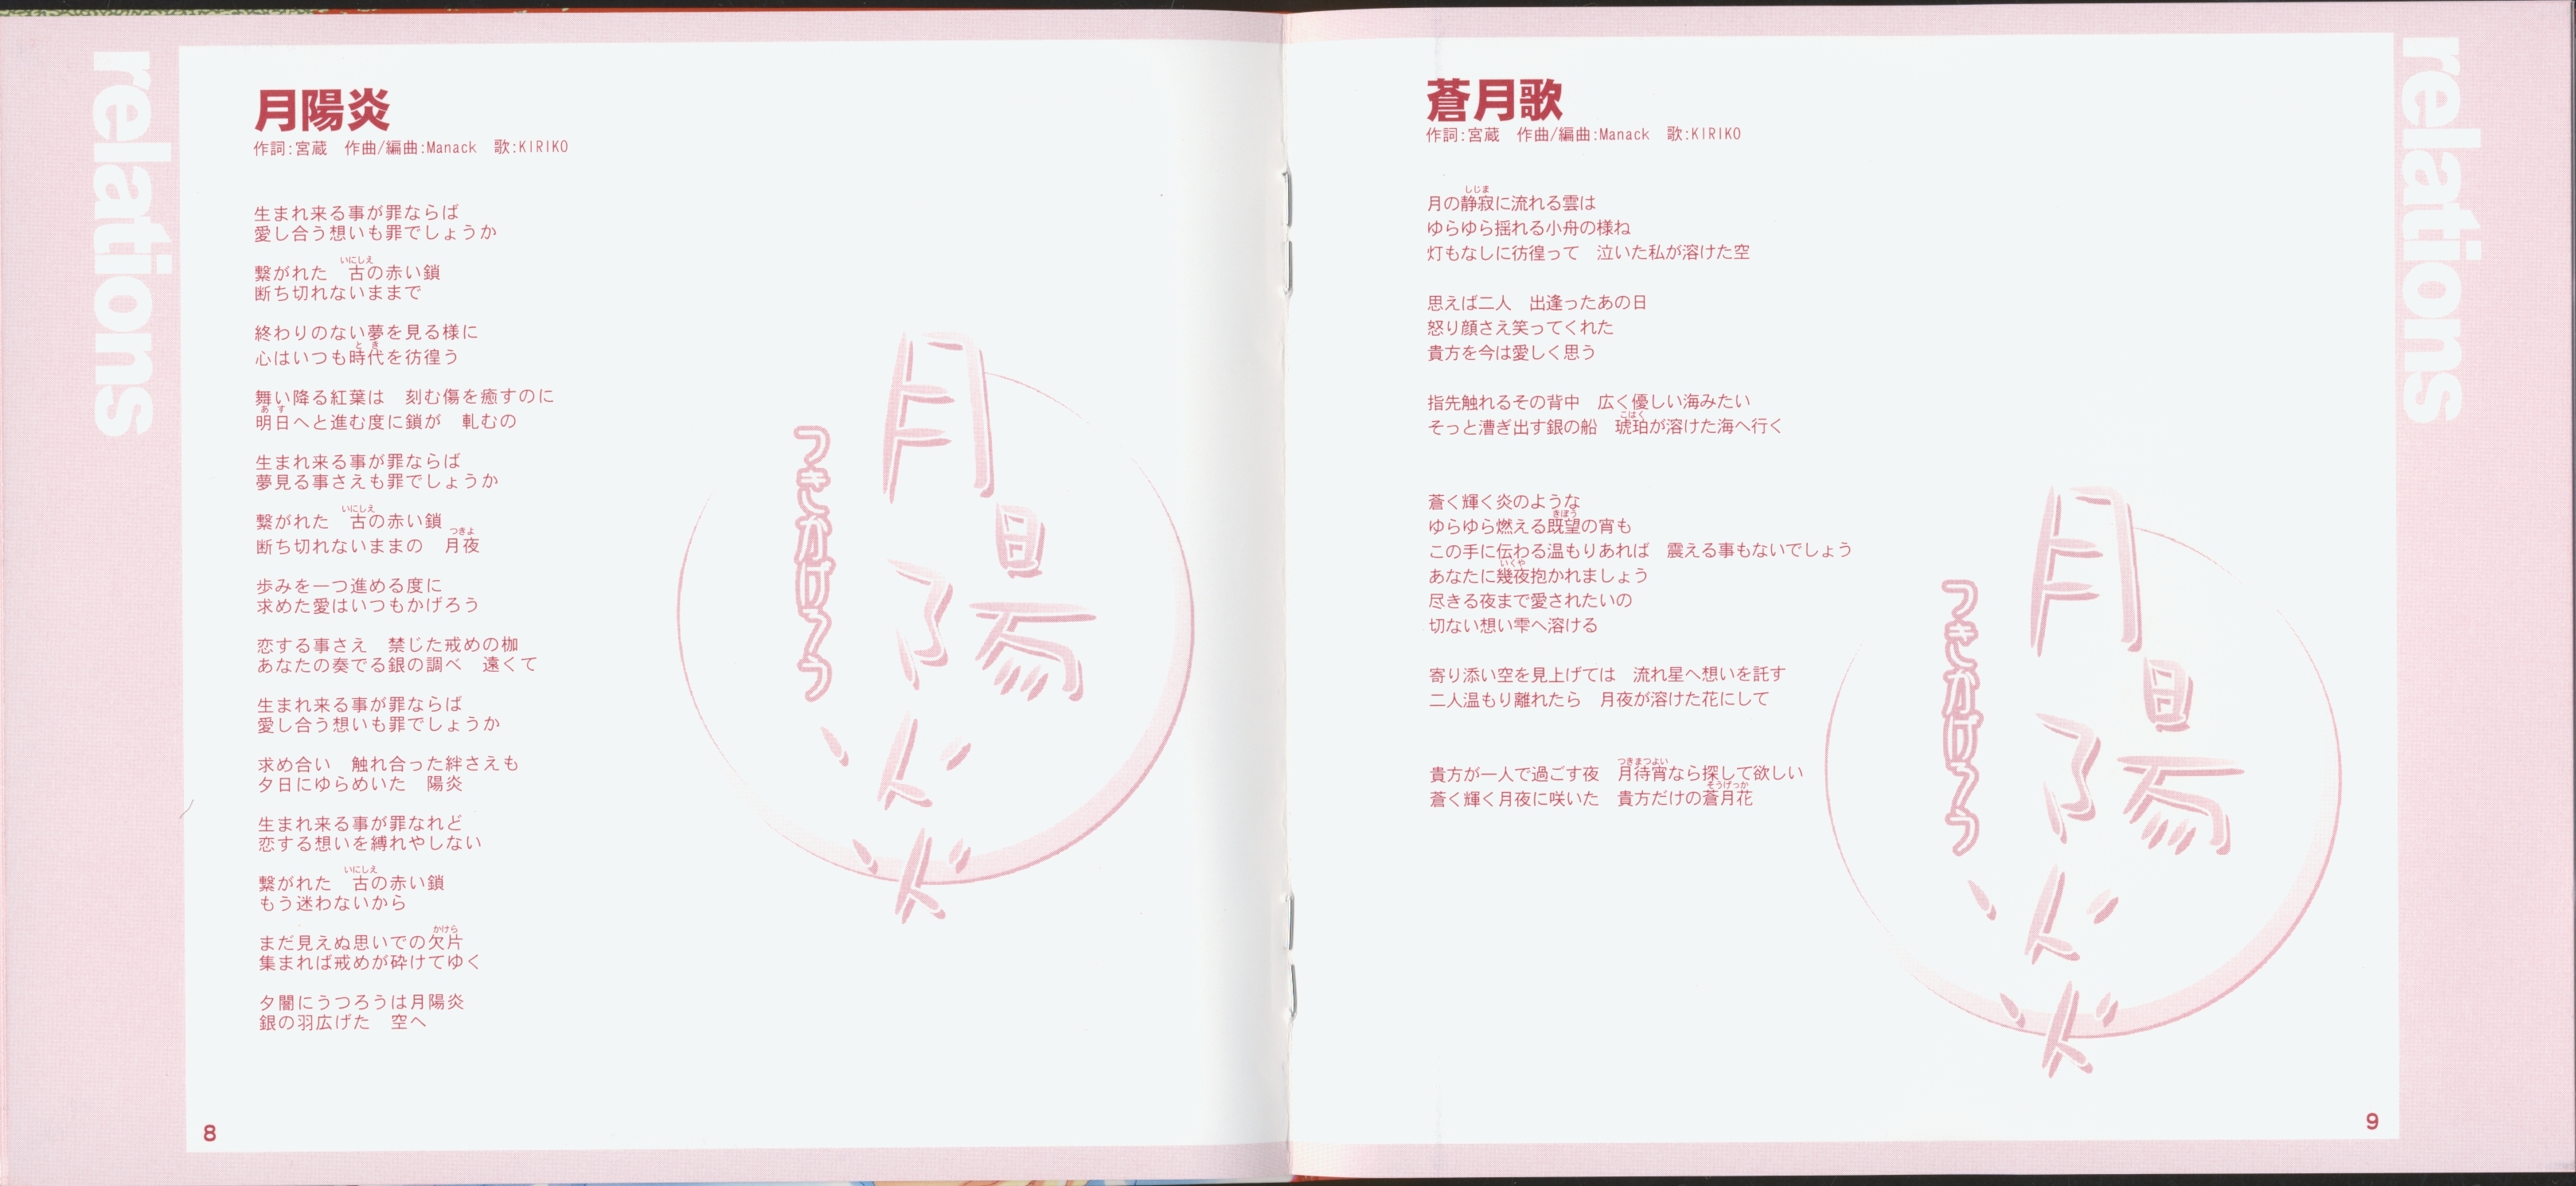 relations
月陽炎
作詞:宮蔵　作曲/編曲:Manack　歌:KIRIKO
生まれ来る事が罪ならば
愛し合う想いも罪でしょうか
いにしえ
繋がれた　古の赤い鎖
断ち切れないままで
終わりのない夢を見る様に
とき
心はいつも時代を彷徨う
舞い降る紅葉は　刻む傷を癒すのに
あす
明日へと進む度に鎖が　軋むの
生まれ来る事が罪ならば
夢見る事さえも罪でしょうか
いにしえ
繋がれた　古の赤い鎖
つきよ
断ち切れないままの　月夜
歩みを一つ進める度に
求めた愛はいつもかげろう
恋する事さえ　禁じた戒めの枷
あなたの奏でる銀の調べ　遠くて
生まれ来る事が罪ならば
愛し合う想いも罪でしょうか
求め合い　触れ合った絆さえも
夕日にゆらめいた　陽炎
生まれ来る事が罪なれど
恋する想いを縛れやしない
いにしえ
繋がれた　古の赤い鎖
もう迷わないから
かけら
まだ見えぬ思いでの欠片
集まれば戒めが砕けてゆく
夕闇にうつろうは月陽炎
銀の羽広げた　空へ
月陽炎
つきかげろう
8
蒼月歌
作詞:宮蔵　作曲/編曲:Manack　歌:KIRIKO
しじま
月の静寂に流れる雲は
ゆらゆら揺れる小舟の様ね
灯もなしに彷徨って　泣いた私が溶けた空
思えば二人　出逢ったあの日
怒り顔さえ笑ってくれた
貴方を今は愛しく思う
指先触れるその背中　広く優しい海みたい
こはく
そっと漕ぎ出す銀の船　琥珀が溶けた海へ行く
蒼く輝く炎のような
きぼう
ゆらゆら燃える既望の宵も
この手に伝わる温もりあれば　震える事もないでしょう
いくや
あなたに幾夜抱かれましょう
尽きる夜まで愛されたいの
切ない想い雫へ溶ける
寄り添い空を見上げては　流れ星へ想いを託す
二人温もり離れたら　月夜が溶けた花にして
つきまつよい
貴方が一人で過ごす夜　月待宵なら探して欲しい
そうげっか
蒼く輝く月夜に咲いた　貴方だけの蒼月花
月陽炎
つきかげろう
relations
9